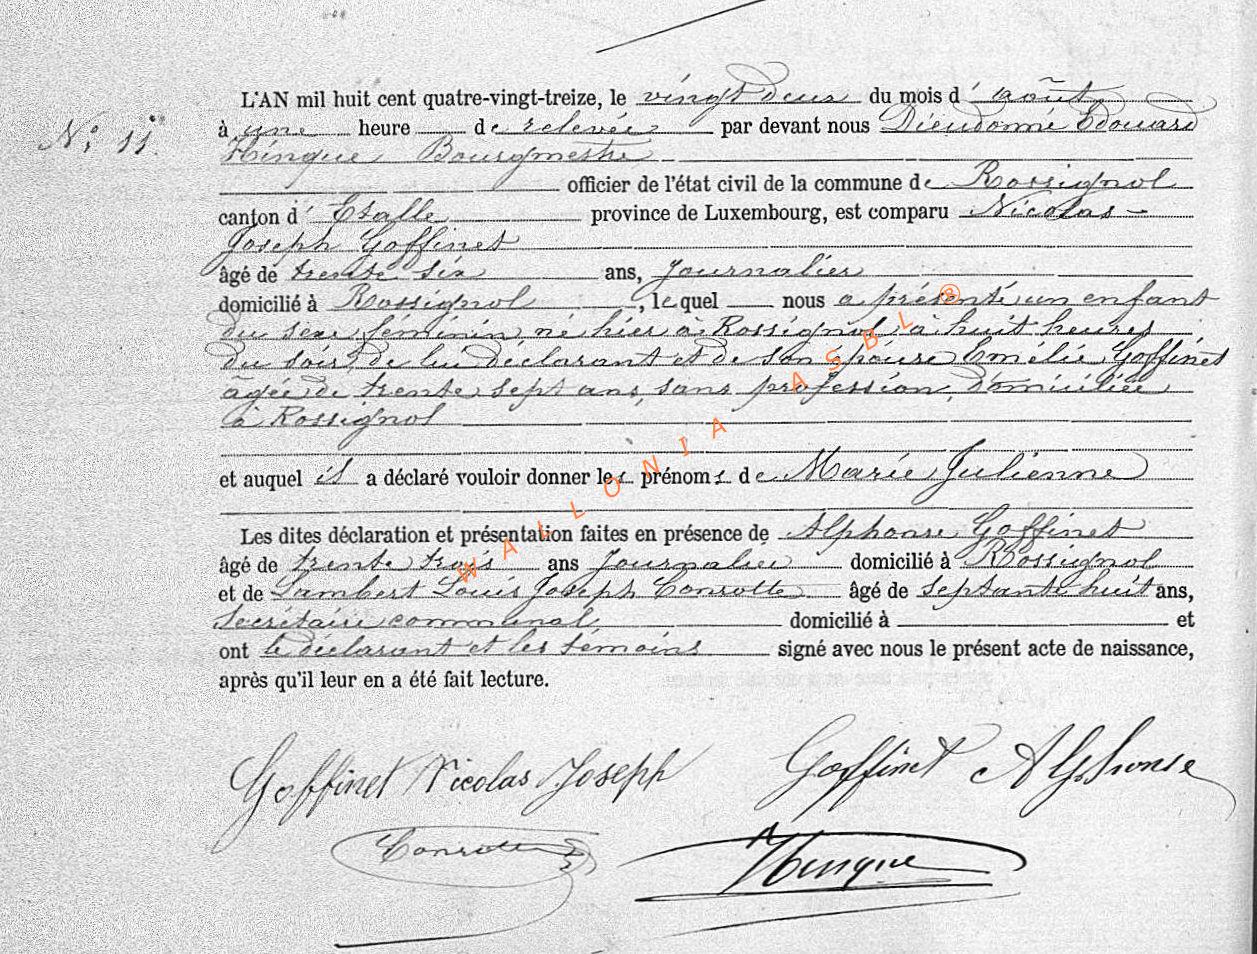 L'AN mil huit cent quatre-vingt-treize, le vingt deux du mois d'août
N° 11. à une heure de relevée par devant nous Dieudonné Edouard
Hinque Bourgmestre
officier de l'état civil de la commune de Rossignol
canton d'Etalle province de Luxembourg, est comparu Nicolas-
Joseph Goffinet
âgé de trente six ans, Journalier
domicilié à Rossignol, lequel nous a présenté un enfant
du sexe féminin né hier à Rossignol à huit heures
du soir, de lui déclarant et de son épouse Emélie Goffinet
âgée de trente sept ans, sans profession, domiciliée
à Rossignol
et auquel il a déclaré vouloir donner les prénoms de Marie Julienne
Les dites déclaration et présentation faites en présence de Alphonse Goffinet
âgé de trente trois ans Journalier domicilié à Rossignol
et de Lambert Louis Joseph Conrotte âgé de septante huit ans,
Secrétaire communal domicilié à et
ont le déclarant et les témoins signé avec nous le présent acte de naissance,
après qu'il leur en a été fait lecture.
Goffinet Nicolas Joseph Goffinet Alphonse
Conrotte Hinque
WALLONIA ASBL ®